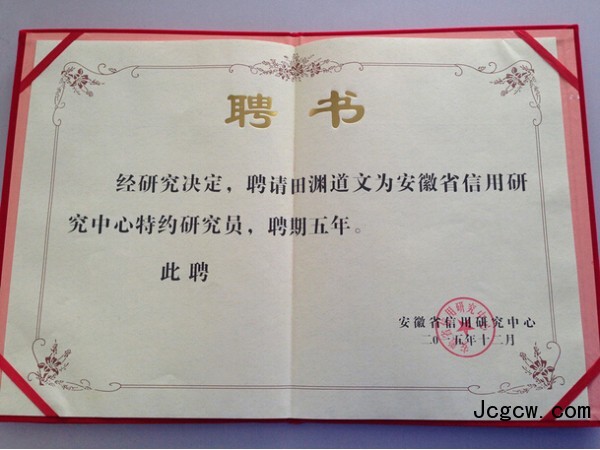 聘书
经研究决定，聘请田渊道文为安徽省信用研
究中心特约研究员，聘期五年。
此聘
安徽省信用研究中心
二〇一五年十二月
Jcgcw.com